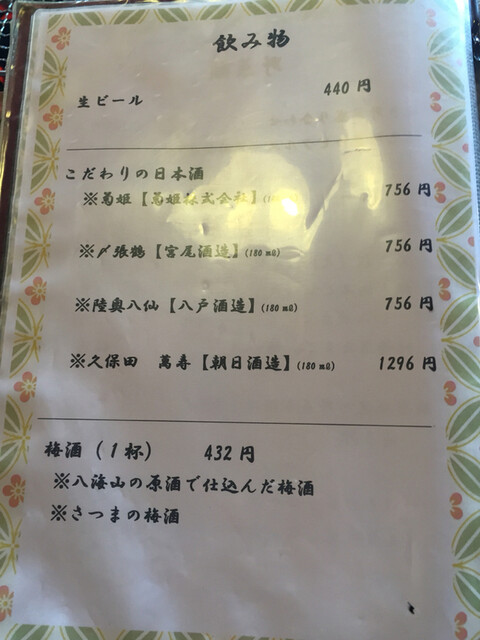 飲み物
生ビール 440円
こだわりの日本酒
※菊姫【菊姫株式会社】(180㎖) 756円
※〆張鶴【宮尾酒造】(180㎖) 756円
※陸奥八仙【八戸酒造】(180㎖) 756円
※久保田 萬寿【朝日酒造】(180㎖) 1296円
梅酒(1杯) 432円
※八海山の原酒で仕込んだ梅酒
※さつまの梅酒